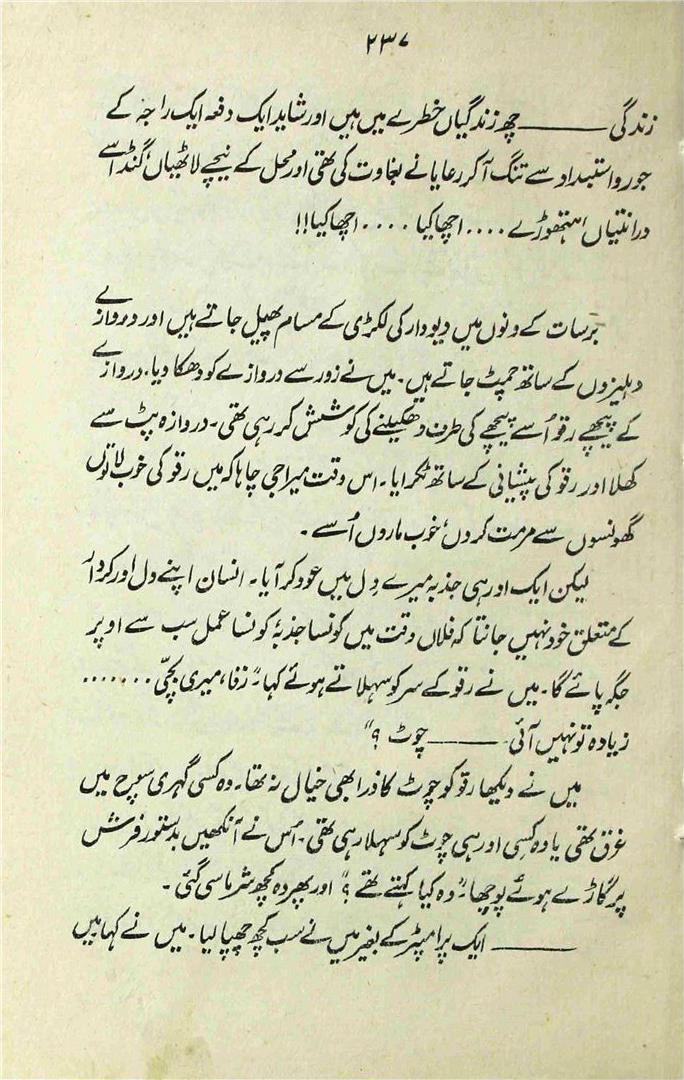 ۲۳۷
زندگی ——— چھ زندگیاں خطرے میں ہیں اور شاید ایک دفعہ ایک راجہ کے
جور و استبداد سے تنگ آ کر رعایا نے بغاوت کی تھی اور محل کے نیچے لاٹھیاں، گنڈاسے
درانتیاں، ہتھوڑے .... اچھا کیا .... اچھا کیا!!
برسات کے دنوں میں دیودار کی لکڑی کے مسام پھیل جاتے ہیں اور دروازے
دہلیزوں کے ساتھ چمٹ جاتے ہیں۔ میں نے زور سے دروازے کو دھکا دیا۔ دروازے
کے پیچھے رقو اُسے پیچھے کی طرف دھکیلنے کی کوشش کر رہی تھی۔ دروازہ پٹ سے
کھلا اور رقو کی پیشانی کے ساتھ ٹکرایا۔ اس وقت میرا جی چاہا کہ میں رقو کی خوب لاتوں
گھونسوں سے مرمت کروں، خوب ماروں اُسے۔
لیکن ایک اور ہی جذبہ میرے دِل میں عود کر آیا۔ انسان اپنے دل اور کردار
کے متعلق خود نہیں جانتا کہ فلاں وقت میں کونسا جذبہٴ کونسا عمل سب سے اوپر
جگہ پائے گا۔ میں نے رقو کے سر کو سہلاتے ہوئے کہا۔ "رفا، میری بچّی .......
زیادہ تو نہیں آئی ——— چوٹ ؟"
میں نے دیکھا رقو کو چوٹ کا ذرا بھی خیال نہ تھا۔ وہ کسی گہری سوچ میں
غرق تھی یا وہ کسِی اور ہی چوٹ کو سہلا رہی تھی۔ اُس نے آنکھیں بدستور فرش
پر گاڑے ہوئے پوچھا۔ "وہ کیا کہتے تھے ؟" اور پھر وہ کچھ شرما سی گئی۔
——— ایک پرامپٹر کے بغیر میں نے سب کچھ چھپا لیا۔ میں نے کہا میں